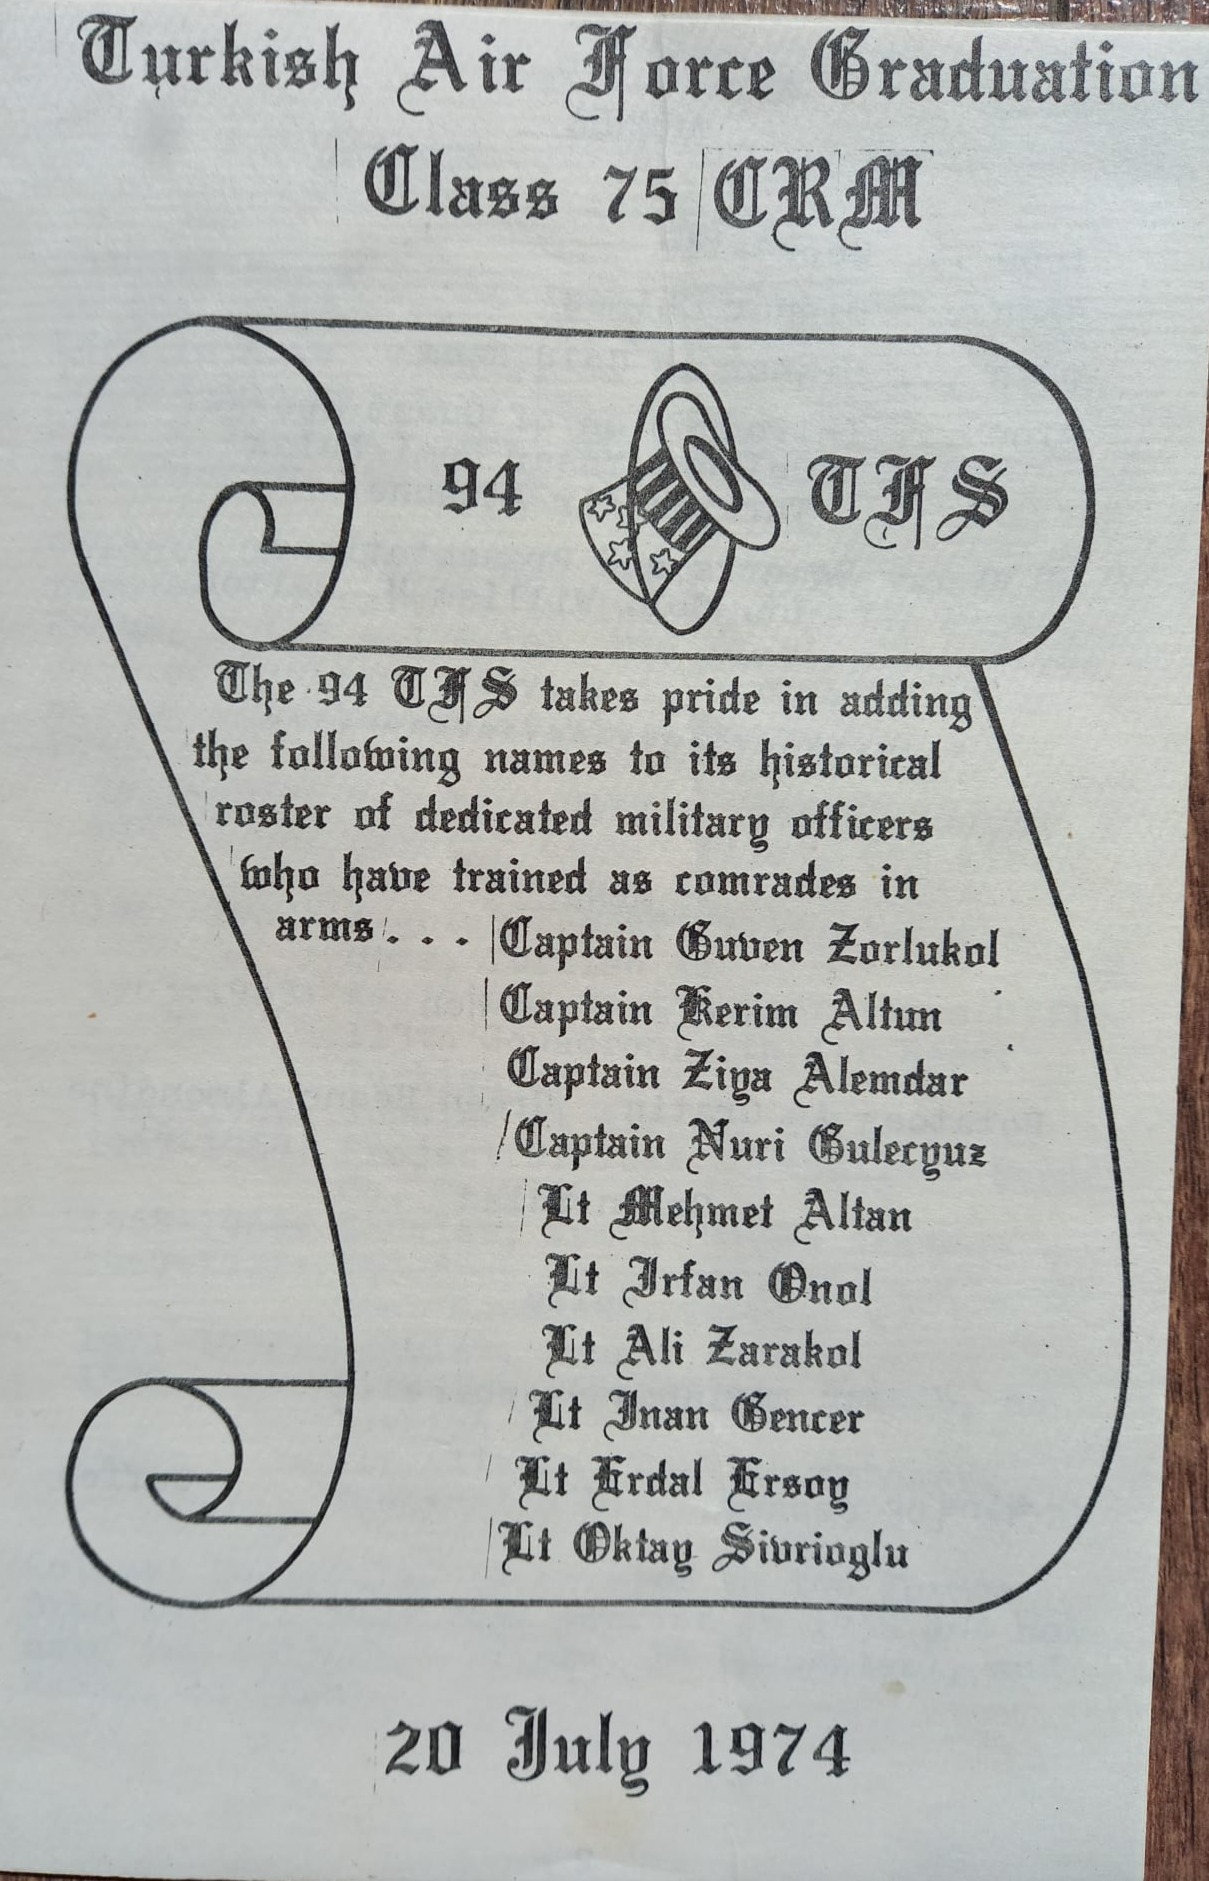 Turkish Air Force Graduation
Class 75 CRM
94 TFS
The 94 TFS takes pride in adding
the following names to its historical
roster of dedicated military officers
who have trained as comrades in
arms . . . Captain Guven Zorlukol
Captain Kerim Altun
Captain Ziya Alemdar
Captain Nuri Gulecyuz
Lt Mehmet Altan
Lt Irfan Onol
Lt Ali Zarakol
Lt Inan Gencer
Lt Erdal Ersoy
Lt Oktay Sivrioglu
20 July 1974